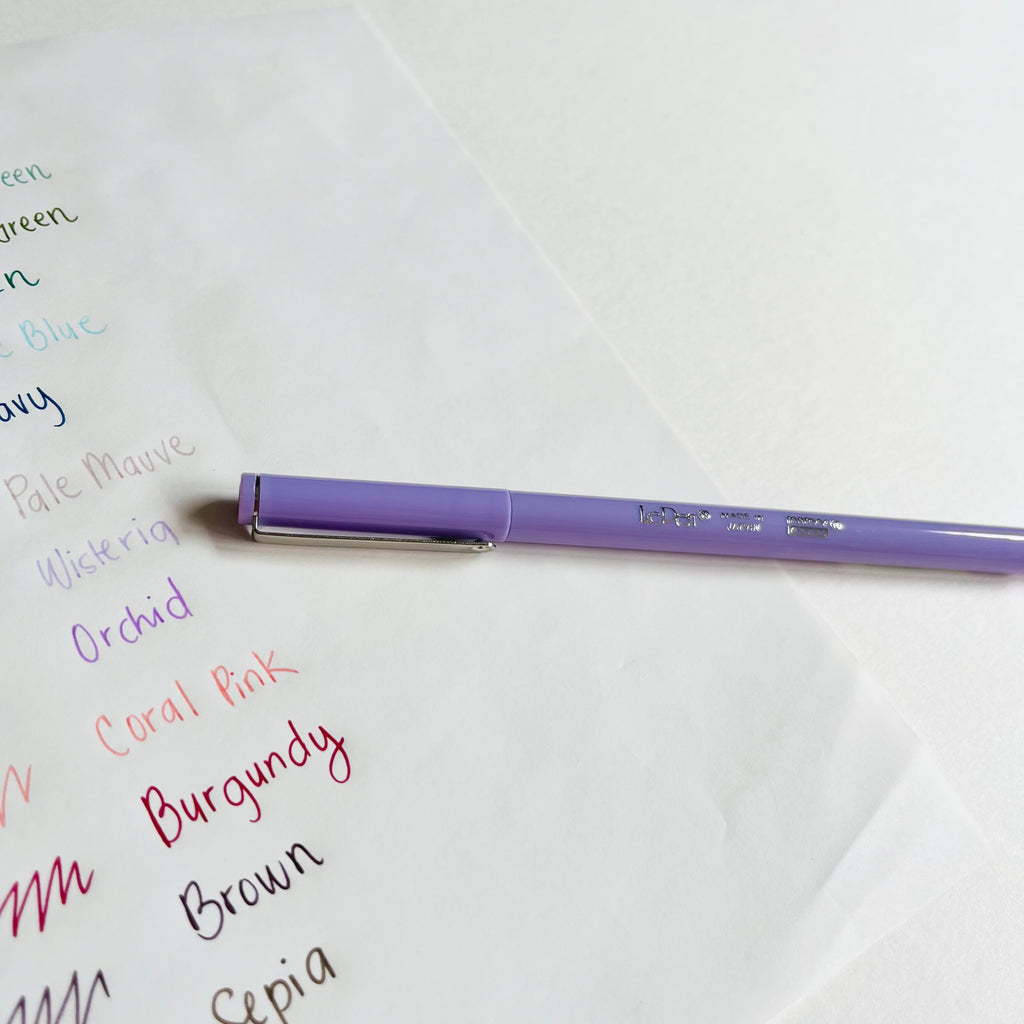 een
green
en
e Blue
avy
Pale Mauve
Wisteria
Orchid
Coral Pink
Burgundy
Brown
Sepia
LePen®
MADE IN
JAPAN